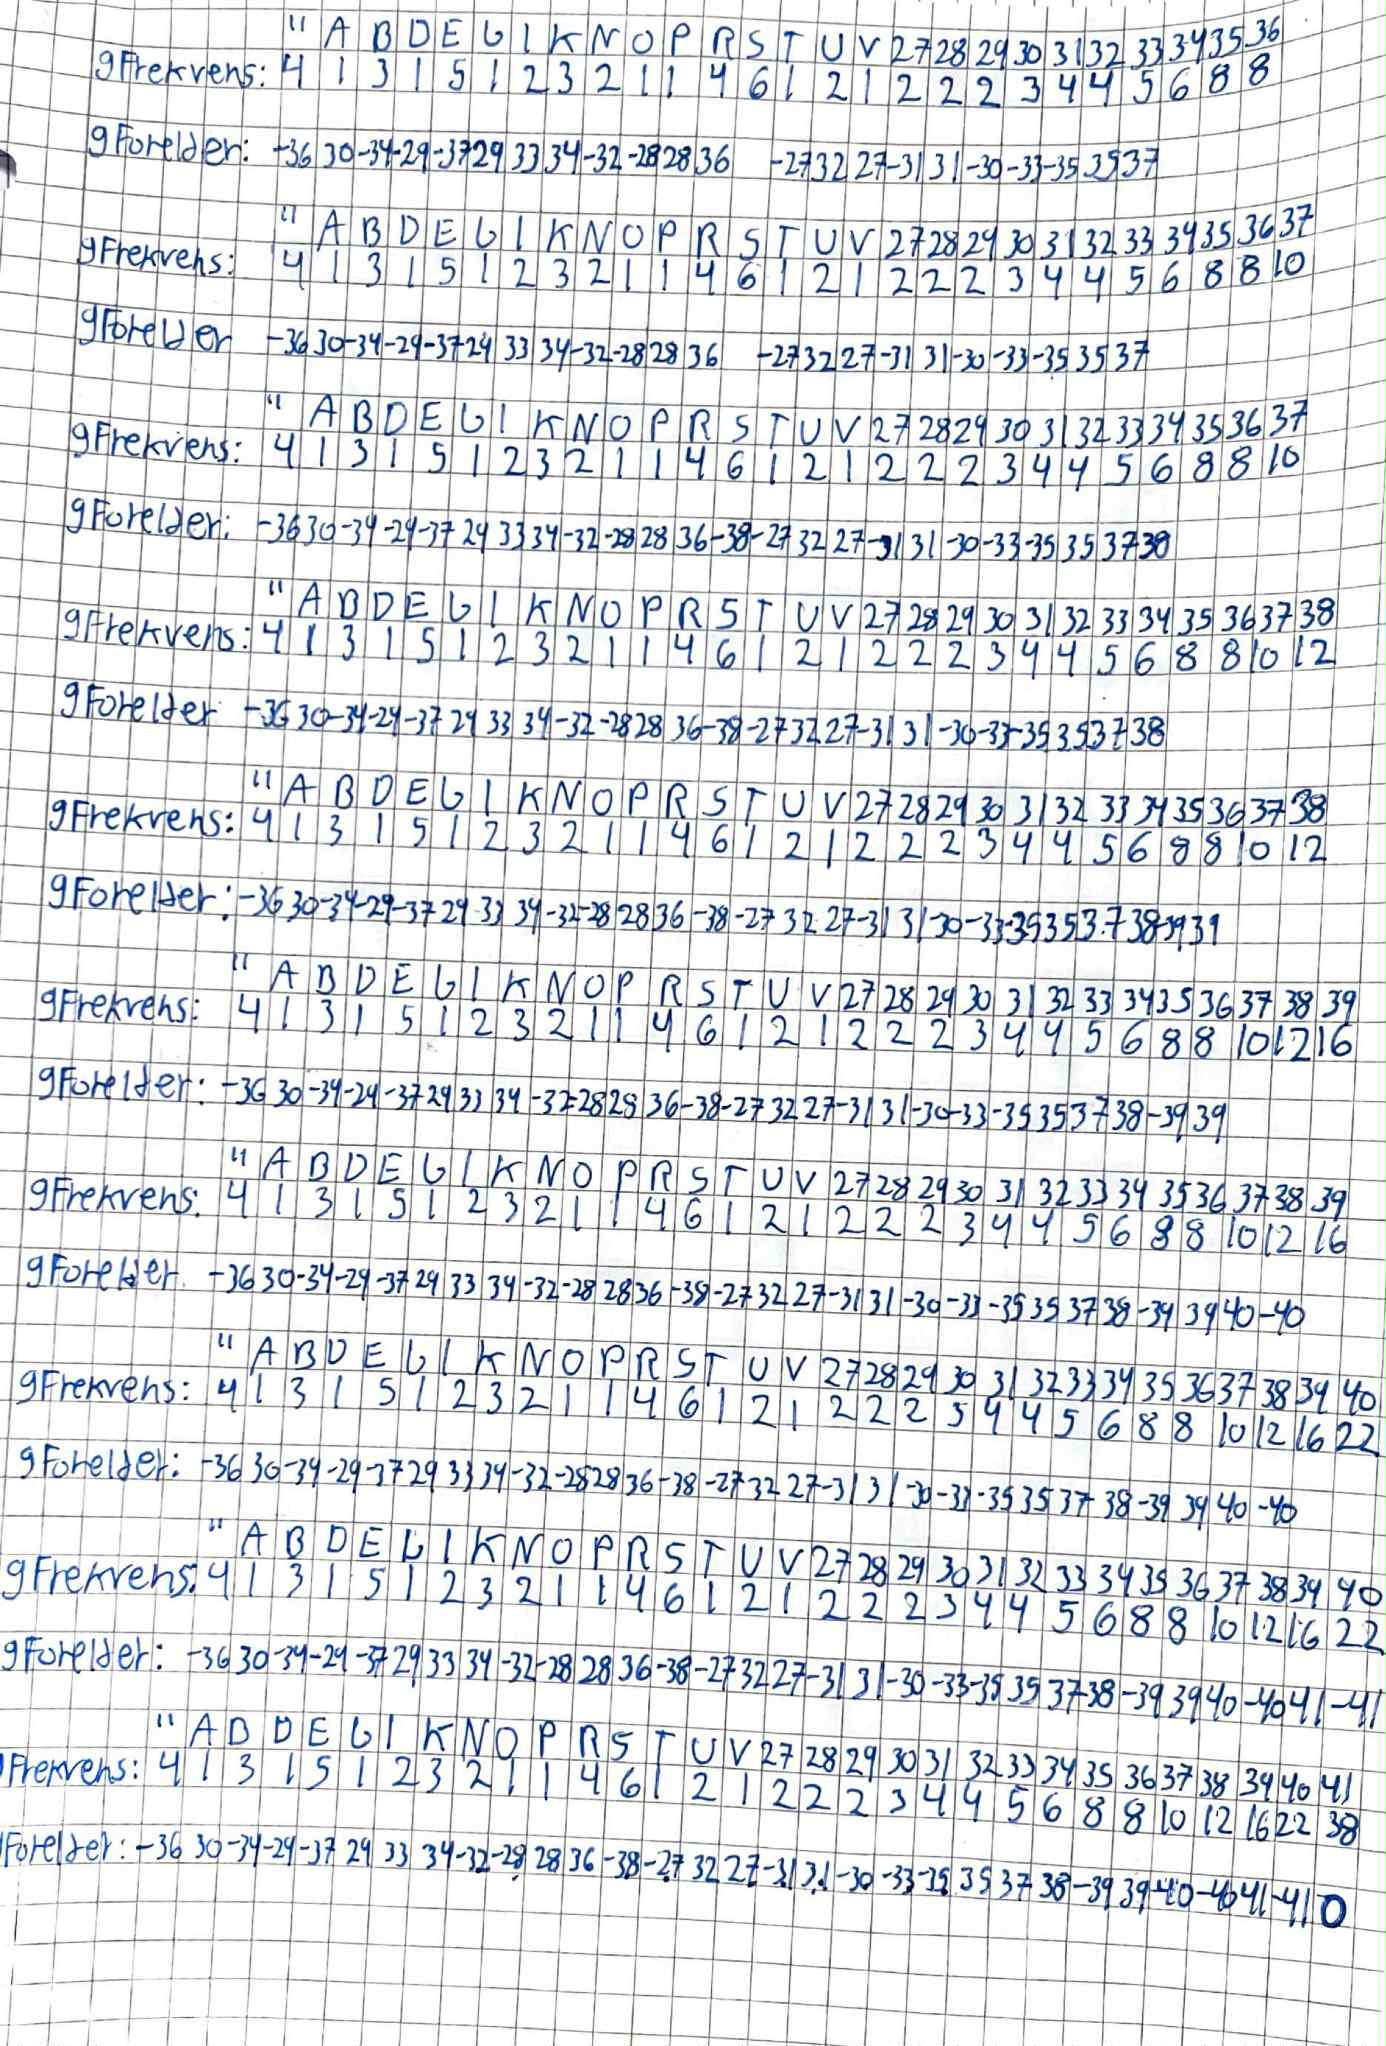 " A B D E G I K N O P R S T U V 27 28 29 30 31 32 33 34 35 36
gFrekvens: 4 1 3 1 5 1 2 3 2 1 1 4 6 1 2 1 2 2 2 3 4 4 5 6 8 8
gForelder: -36 30 -34 -29 -37 29 33 34 -32 -28 28 36 -27 32 27 -31 31 -30 -33 -35 35 37
" A B D E G I K N O P R S T U V 27 28 29 30 31 32 33 34 35 36 37
gFrekvens: 4 1 3 1 5 1 2 3 2 1 1 4 6 1 2 1 2 2 2 3 4 4 5 6 8 8 10
gForelder -36 30 -34 -29 -37 29 33 34 -32 -28 28 36 -27 32 27 -31 31 -30 -33 -35 35 37
" A B D E G I K N O P R S T U V 27 28 29 30 31 32 33 34 35 36 37
gFrekvens: 4 1 3 1 5 1 2 3 2 1 1 4 6 1 2 1 2 2 2 3 4 4 5 6 8 8 10
gForelder: -36 30 -34 -29 -37 29 33 34 -32 -28 28 36 -38 -27 32 27 -31 31 -30 -33 -35 35 37 38
" A B D E G I K N O P R S T U V 27 28 29 30 31 32 33 34 35 36 37 38
gFrekvens: 4 1 3 1 5 1 2 3 2 1 1 4 6 1 2 1 2 2 2 3 4 4 5 6 8 8 10 12
gForelder -36 30 -34 -29 -37 29 33 34 -32 -28 28 36 -38 -27 32 27 -31 31 -30 -33 -35 35 37 38
" A B D E G I K N O P R S T U V 27 28 29 30 31 32 33 34 35 36 37 38
gFrekvens: 4 1 3 1 5 1 2 3 2 1 1 4 6 1 2 1 2 2 2 3 4 4 5 6 8 8 10 12
gForelder: -36 30 -34 -29 -37 29 33 34 -32 -28 28 36 -38 -27 32 27 -31 31 -30 -33 -35 35 37 38 -39 39
" A B D E G I K N O P R S T U V 27 28 29 30 31 32 33 34 35 36 37 38 39
gFrekvens: 4 1 3 1 5 1 2 3 2 1 1 4 6 1 2 1 2 2 2 3 4 4 5 6 8 8 10 12 16
gForelder: -36 30 -34 -29 -37 29 33 34 -32 -28 28 36 -38 -27 32 27 -31 31 -30 -33 -35 35 37 38 -39 39
" A B D E G I K N O P R S T U V 27 28 29 30 31 32 33 34 35 36 37 38 39
gFrekvens: 4 1 3 1 5 1 2 3 2 1 1 4 6 1 2 1 2 2 2 3 4 4 5 6 8 8 10 12 16
gForelder -36 30 -34 -29 -37 29 33 34 -32 -28 28 36 -38 -27 32 27 -31 31 -30 -33 -35 35 37 38 -39 39 40 -40
" A B D E G I K N O P R S T U V 27 28 29 30 31 32 33 34 35 36 37 38 39 40
gFrekvens: 4 1 3 1 5 1 2 3 2 1 1 4 6 1 2 1 2 2 2 3 4 4 5 6 8 8 10 12 16 22
gForelder: -36 30 -34 -29 -37 29 33 34 -32 -28 28 36 -38 -27 32 27 -31 31 -30 -33 -35 35 37 38 -39 39 40 -40
" A B D E G I K N O P R S T U V 27 28 29 30 31 32 33 34 35 36 37 38 39 40
gFrekvens: 4 1 3 1 5 1 2 3 2 1 1 4 6 1 2 1 2 2 2 3 4 4 5 6 8 8 10 12 16 22
gForelder: -36 30 -34 -29 -37 29 33 34 -32 -28 28 36 -38 -27 32 27 -31 31 -30 -33 -35 35 37 38 -39 39 40 -40 41 -41
" A B D E G I K N O P R S T U V 27 28 29 30 31 32 33 34 35 36 37 38 39 40 41
Frekvens: 4 1 3 1 5 1 2 3 2 1 1 4 6 1 2 1 2 2 2 3 4 4 5 6 8 8 10 12 16 22 38
Forelder: -36 30 -34 -29 -37 29 33 34 -32 -28 28 36 -38 -27 32 27 -31 31 -30 -33 -35 35 37 38 -39 39 40 -40 41 -41 0